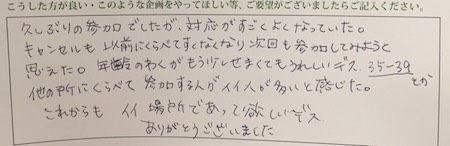 こうした方が良い・このような企画をやってほしい等、ご要望がございましたらご記入ください。
久しぶりの参加でしたが、対応がすごくよくなっていた。
キャンセルも以前にくらべてすくなくなり次回も参加してみようと
思えた。年齢のわくがもう少しせまくてもうれしいデス 35-39
とか
他の所にくらべて参加する人がイイ人が多いと感じた。
これからもイイ場所であって欲しいデス
ありがとうございました